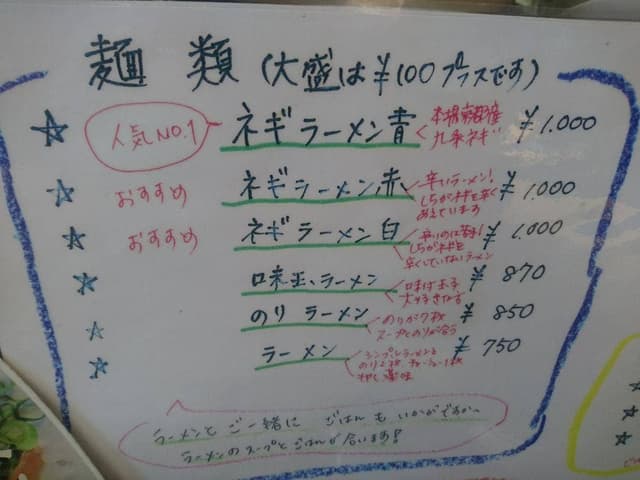 麺類(大盛は¥100プラスです)
人気NO.1 ネギラーメン青 九条ネギ ¥1.000
おすすめ ネギラーメン赤 辛いラーメン! しらがネギを辛く あえています ¥1.000
おすすめ ネギラーメン白 しらがネギを 辛くしていないラーメン ¥1.000
味玉ラーメン 味付玉子 ¥870
のりラーメン のりが7枚 スープとのりが合う ¥850
ラーメン シンプルラーメン ¥750
ラーメンと ご一緒に ごはんも いかがですか~
ラーメンのスープと ごはんが合います!